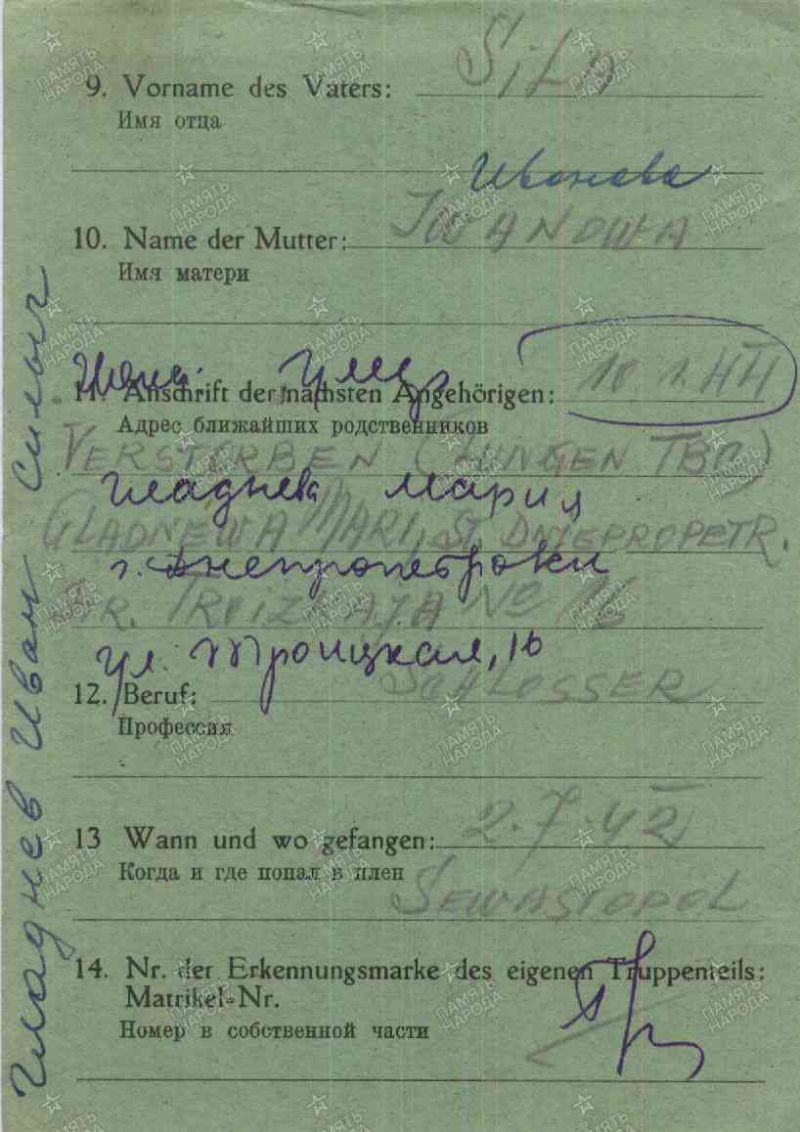 9. Vorname des Vaters: SiLA
Имя отца
Иванова
10. Name der Mutter: IWANOWA
Имя матери
Жена умер
11. Anschrift der nächsten Angehörigen: 10.1.44
Адрес ближайших родственников
VERSTORBEN (LUNGEN TBC)
Гладнева Мария
GLADNEWA MARI, ST. DNIEPROPETR.
г. Днепропетровск
STR. TROIZKAJA No 16
ул. Троицкая, 16
12. Beruf: SCHLOSSER
Профессия
13 Wann und wo gefangen: 2.7.42
Когда и где попал в плен
SEWASTOPOL
14. Nr. der Erkennungsmarke des eigenen Truppenteils:
Matrikel-Nr.
Номер в собственной части
Гладнев Иван Силыч
ПАМЯТЬ НАРОДА